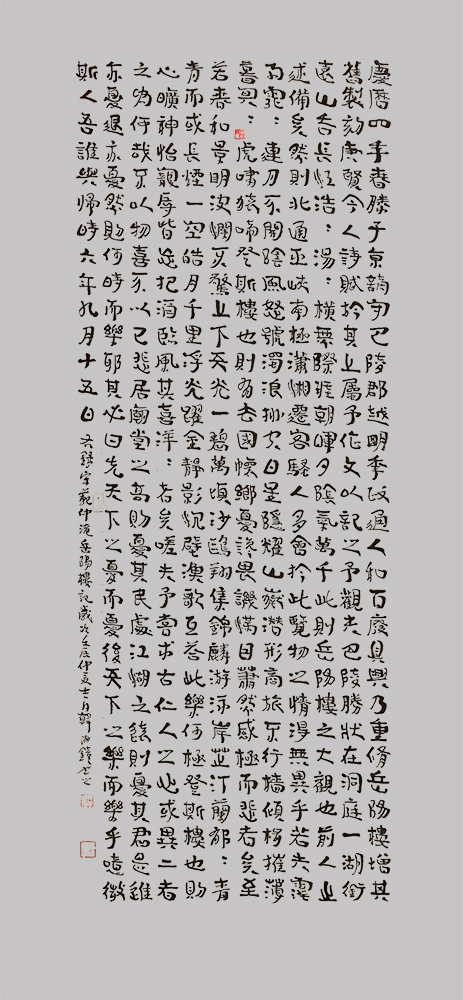 慶曆四年春滕子京謫守巴陵郡越明年政通人和百廢具興乃重脩岳陽樓增其
舊製刻唐賢今人詩賦於其上屬予作文以記之予觀夫巴陵勝狀在洞庭一湖銜
遠山吞長江浩〻湯〻橫無際涯朝暉夕陰氣萬千此則岳陽樓之大觀也前人之
述備矣然則北通巫峽南極瀟湘遷客騷人多會於此覽物之情得無異乎若夫霪
雨霏〻連月不開陰風怒號濁浪排空日星隱耀山嶽潛形商旅不行檣傾楫摧薄
暮冥〻虎嘯猿啼登斯樓也則有去國懷鄉憂讒畏譏滿目蕭然感極而悲者矣至
若春和景明波瀾不驚上下天光一碧萬頃沙鷗翔集錦鱗游泳岸芷汀蘭郁〻青
青而或長煙一空皓月千里浮光躍金靜影沉璧漁歌互答此樂何極登斯樓也則
心曠神怡寵辱皆忘把酒臨風其喜洋〻者矣嗟夫予嘗求古仁人之心或異二者
之為何哉不以物喜不以己悲居廟堂之高則憂其民處江湖之遠則憂其君是進
亦憂退亦憂然則何時而樂耶其必曰先天下之憂而憂後天下之樂而樂乎噫微
斯人吾誰與歸時六年九月十五日 右錄宋范仲淹岳陽樓記歲次壬辰仲夏